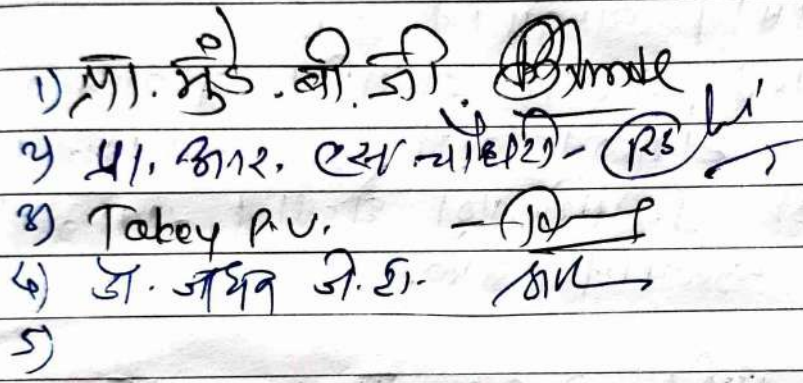 1) प्रा. मुंडे. बी. जी.
२) प्रा. आर. एस. चौधरी - RS
३) Takey P. V. -
४) डॉ. जाधव जे. डी.
5)